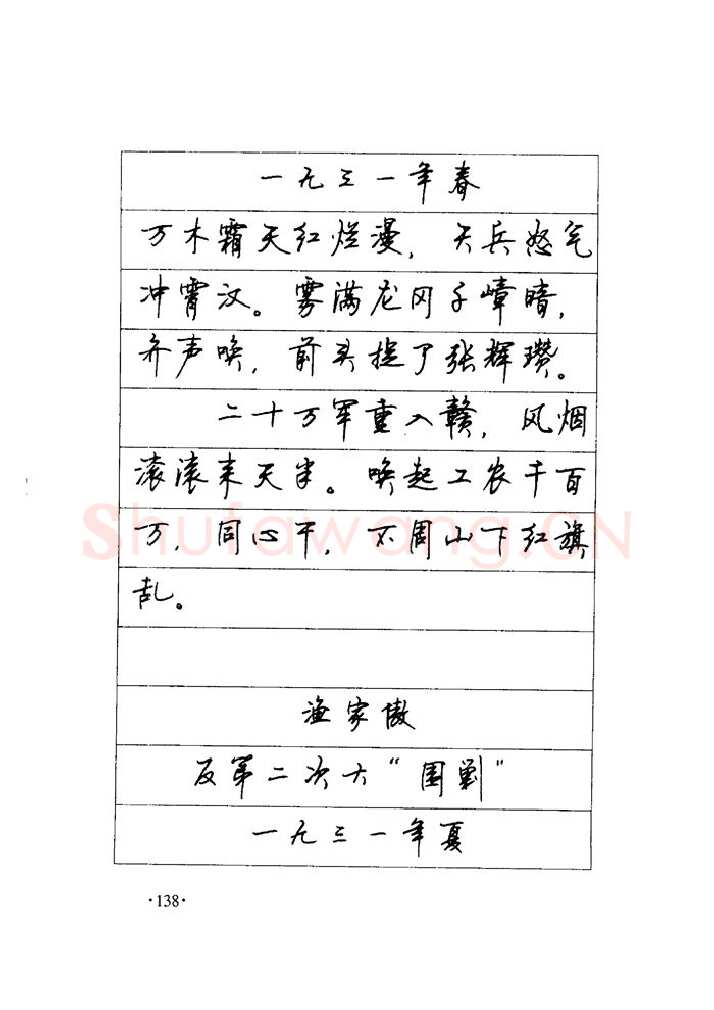 一九三一年春
万木霜天红烂漫，天兵怒气
冲霄汉。雾满龙冈千嶂暗，
齐声唤，前头捉了张辉瓒。
二十万军重入赣，风烟
滚滚来天半。唤起工农千百
万，同心干，不周山下红旗
乱。
渔家傲
反第二次大“围剿”
一九三一年夏
·138·
Shufawang.CN